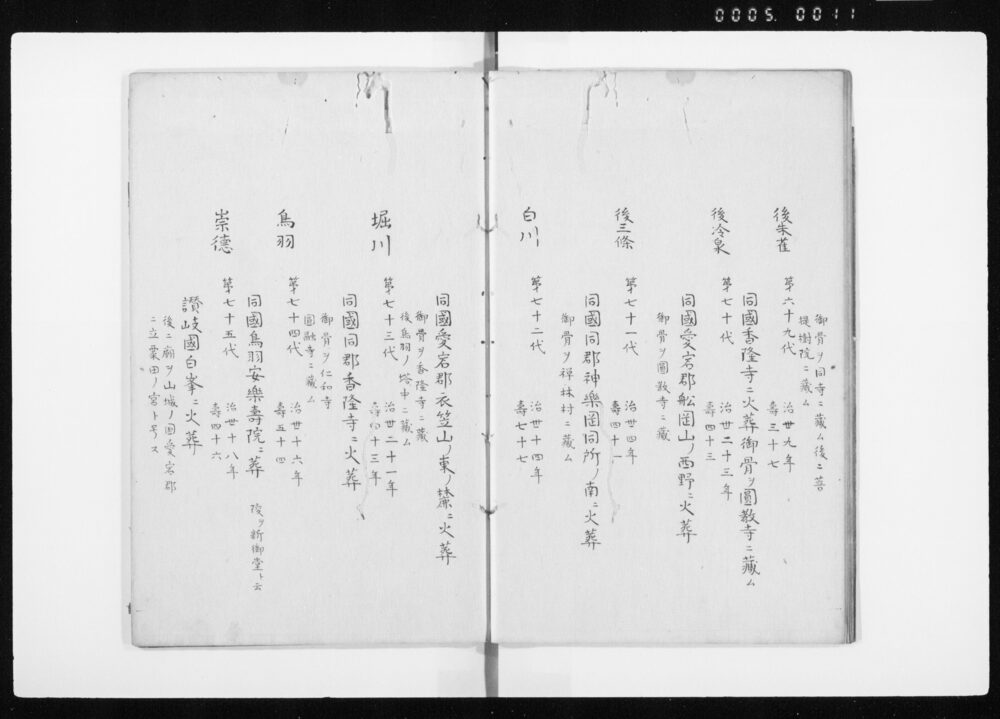 0005.0011
御骨ヲ同寺ニ藏ム後ニ菩
提樹院ニ藏ム
後朱雀
第六十九代 治世九年
壽三十七
同國香隆寺ニ火葬御骨ヲ圓教寺ニ藏ム
後冷泉
第七十代 治世二十三年
壽四十三
同國愛宕郡舩岡山ノ西野ニ火葬
御骨ヲ圓教寺ニ藏
後三條
第七十一代 治世四年
壽四十一
同國同郡神樂岡同所ノ南ニ火葬
御骨ヲ禅林村ニ藏ム
白川
第七十二代 治世十四年
壽七十七
同國愛宕郡衣笠山ノ東ノ麓ニ火葬
御骨ヲ香隆寺ニ藏
後鳥羽ノ塔中ニ藏ム
堀川
第七十三代 治世二十一年
十三年
同國同郡香隆寺ニ火葬
御骨ヲ仁和寺
圓融寺ニ藏ム
鳥羽
第七十四代 治世十六年
壽五十四
同國鳥羽安樂壽院ニ葬 陵ヲ新御堂ト云
崇德
第七十五代 治世十八年
壽四十六
讃岐國白峯ニ火葬
後ニ廟ヲ山城ノ國愛宕郡
ニ立粟田ノ宮ト号ス